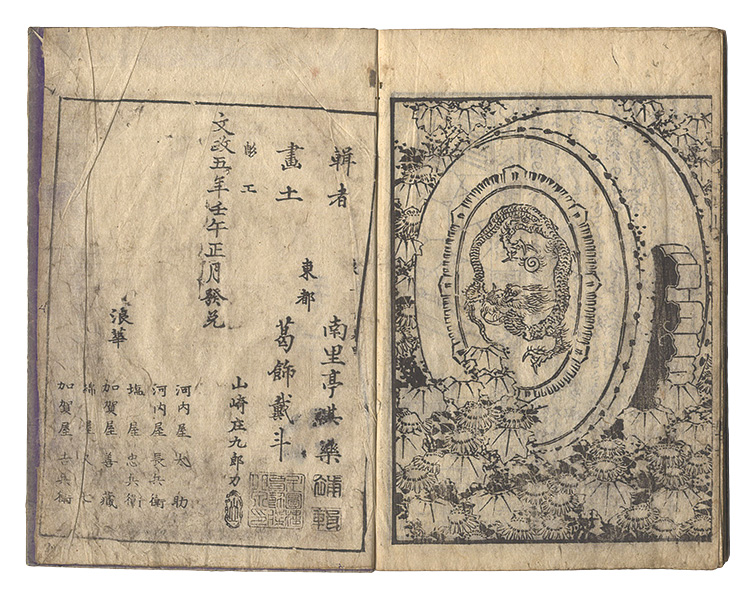 輯者 南里亭其樂 補輯
畫士 東都 葛飾戴斗
彫工 山崎庄九郎刀
文政五年壬午正月發兌
浪華
河内屋太助
河内屋長兵衛
塩屋忠兵衛
加賀屋善藏
加賀屋吉兵衛